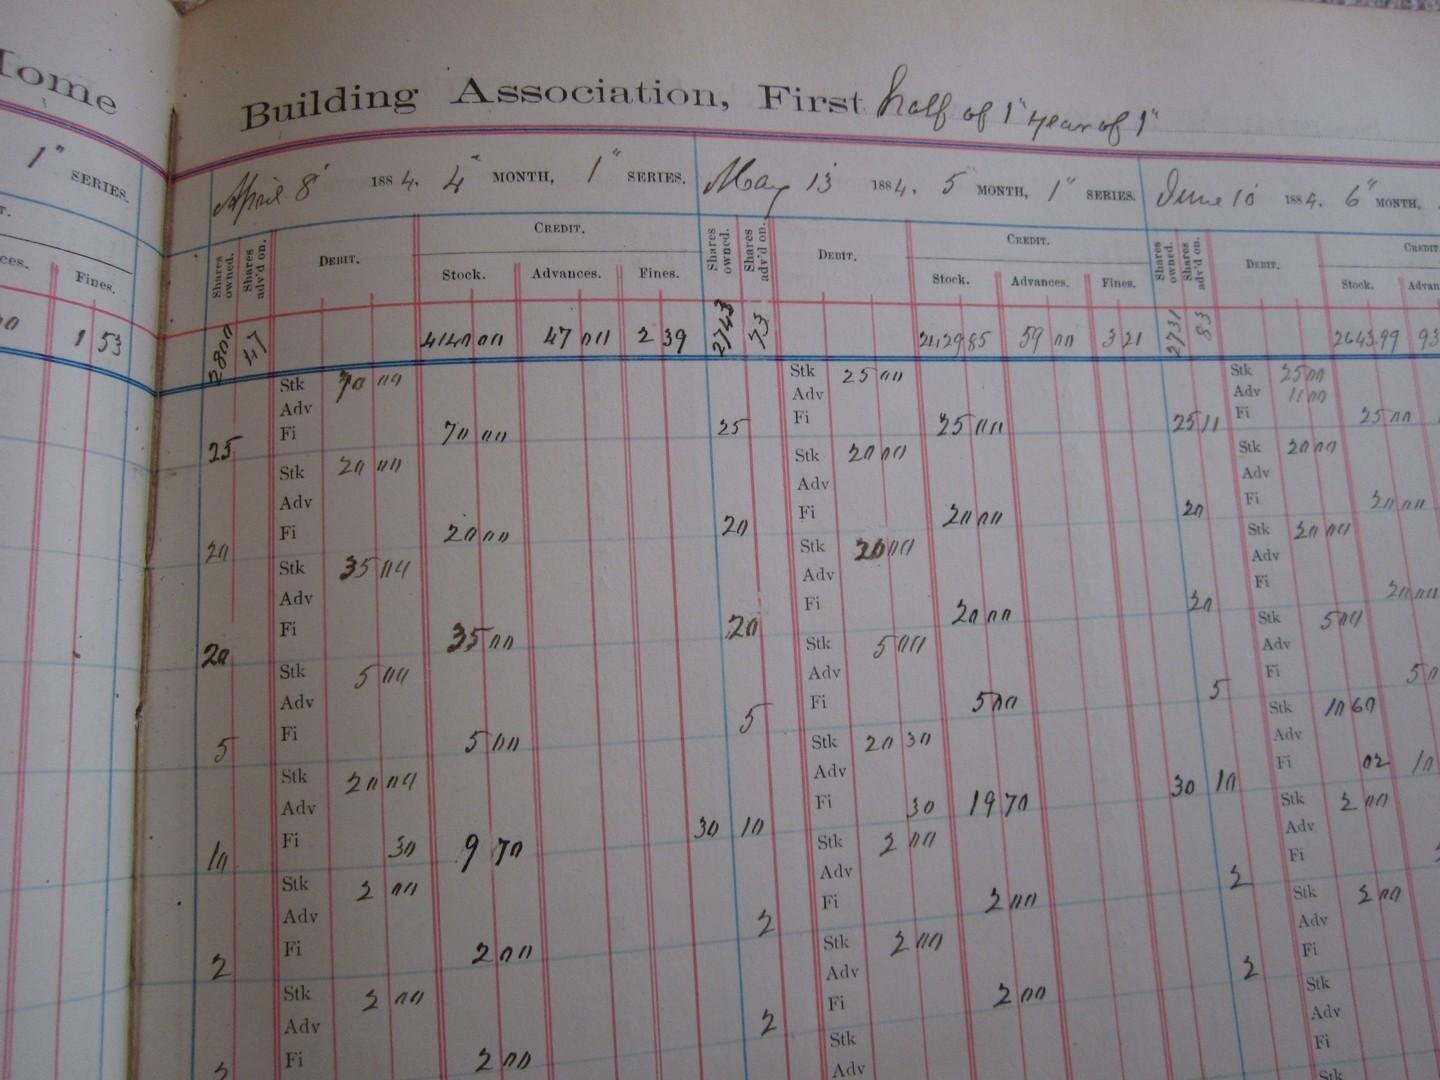 Home Building Association, First half of 1" year of 1"
1" SERIES.
April 8" 1884. 4" MONTH, 1" SERIES. May 13 1884. 5 MONTH, 1" SERIES. June 10 1884. 6" MONTH,
Fines. Shares owned. Shares adv'd on. DEBIT. CREDIT. Shares owned. Shares adv'd on. DEBIT. CREDIT. Shares owned. Shares adv'd on. DEBIT. CREDIT
Stock. Advances. Fines. Stock. Advances. Fines. Stock. Advan
1 53 2800 47 4140 00 47 00 2 39 2743 73 2429 85 59 00 3 21 2731 83 2643.99 93
Stk 70 00 Stk 25 00 Stk 25 00
Adv Adv Adv 11 00
25 Fi 70 00 25 Fi 25 00 25 11 Fi 25 00
Stk 20 00 Stk 20 00 Stk 20 00
Adv Adv Adv
20 Fi 20 00 20 Fi 20 00 20 Fi 20 00
Stk 35 00 Stk 20 00 Stk 20 00
Adv Adv Adv
20 Fi 35 00 20 Fi 20 00 20 Fi 20 00
Stk 5 00 Stk 5 00 Stk 5 00
Adv Adv Adv
5 Fi 5 00 5 Fi 5 00 5 Fi 5 0
Stk 20 00 Stk 20 30 Stk 10 60
Adv Adv Adv
10 Fi 30 9 70 30 10 Fi 30 19 70 30 10 Fi 02 10
Stk 2 00 Stk 2 00 Stk 2 00
Adv Adv Adv
2 Fi 2 00 2 Fi 2 00 2 Fi
Stk 2 00 Stk 2 00 Stk 2 00
Adv Adv Adv
2 Fi 2 00 2 Fi 2 00 2 Fi
Stk Stk
Adv Adv
Fi
Stk